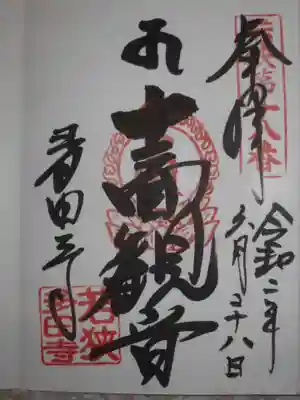 奉拝
令和二年
六月二十八日
十一面観音
多田寺
若狭
多田寺